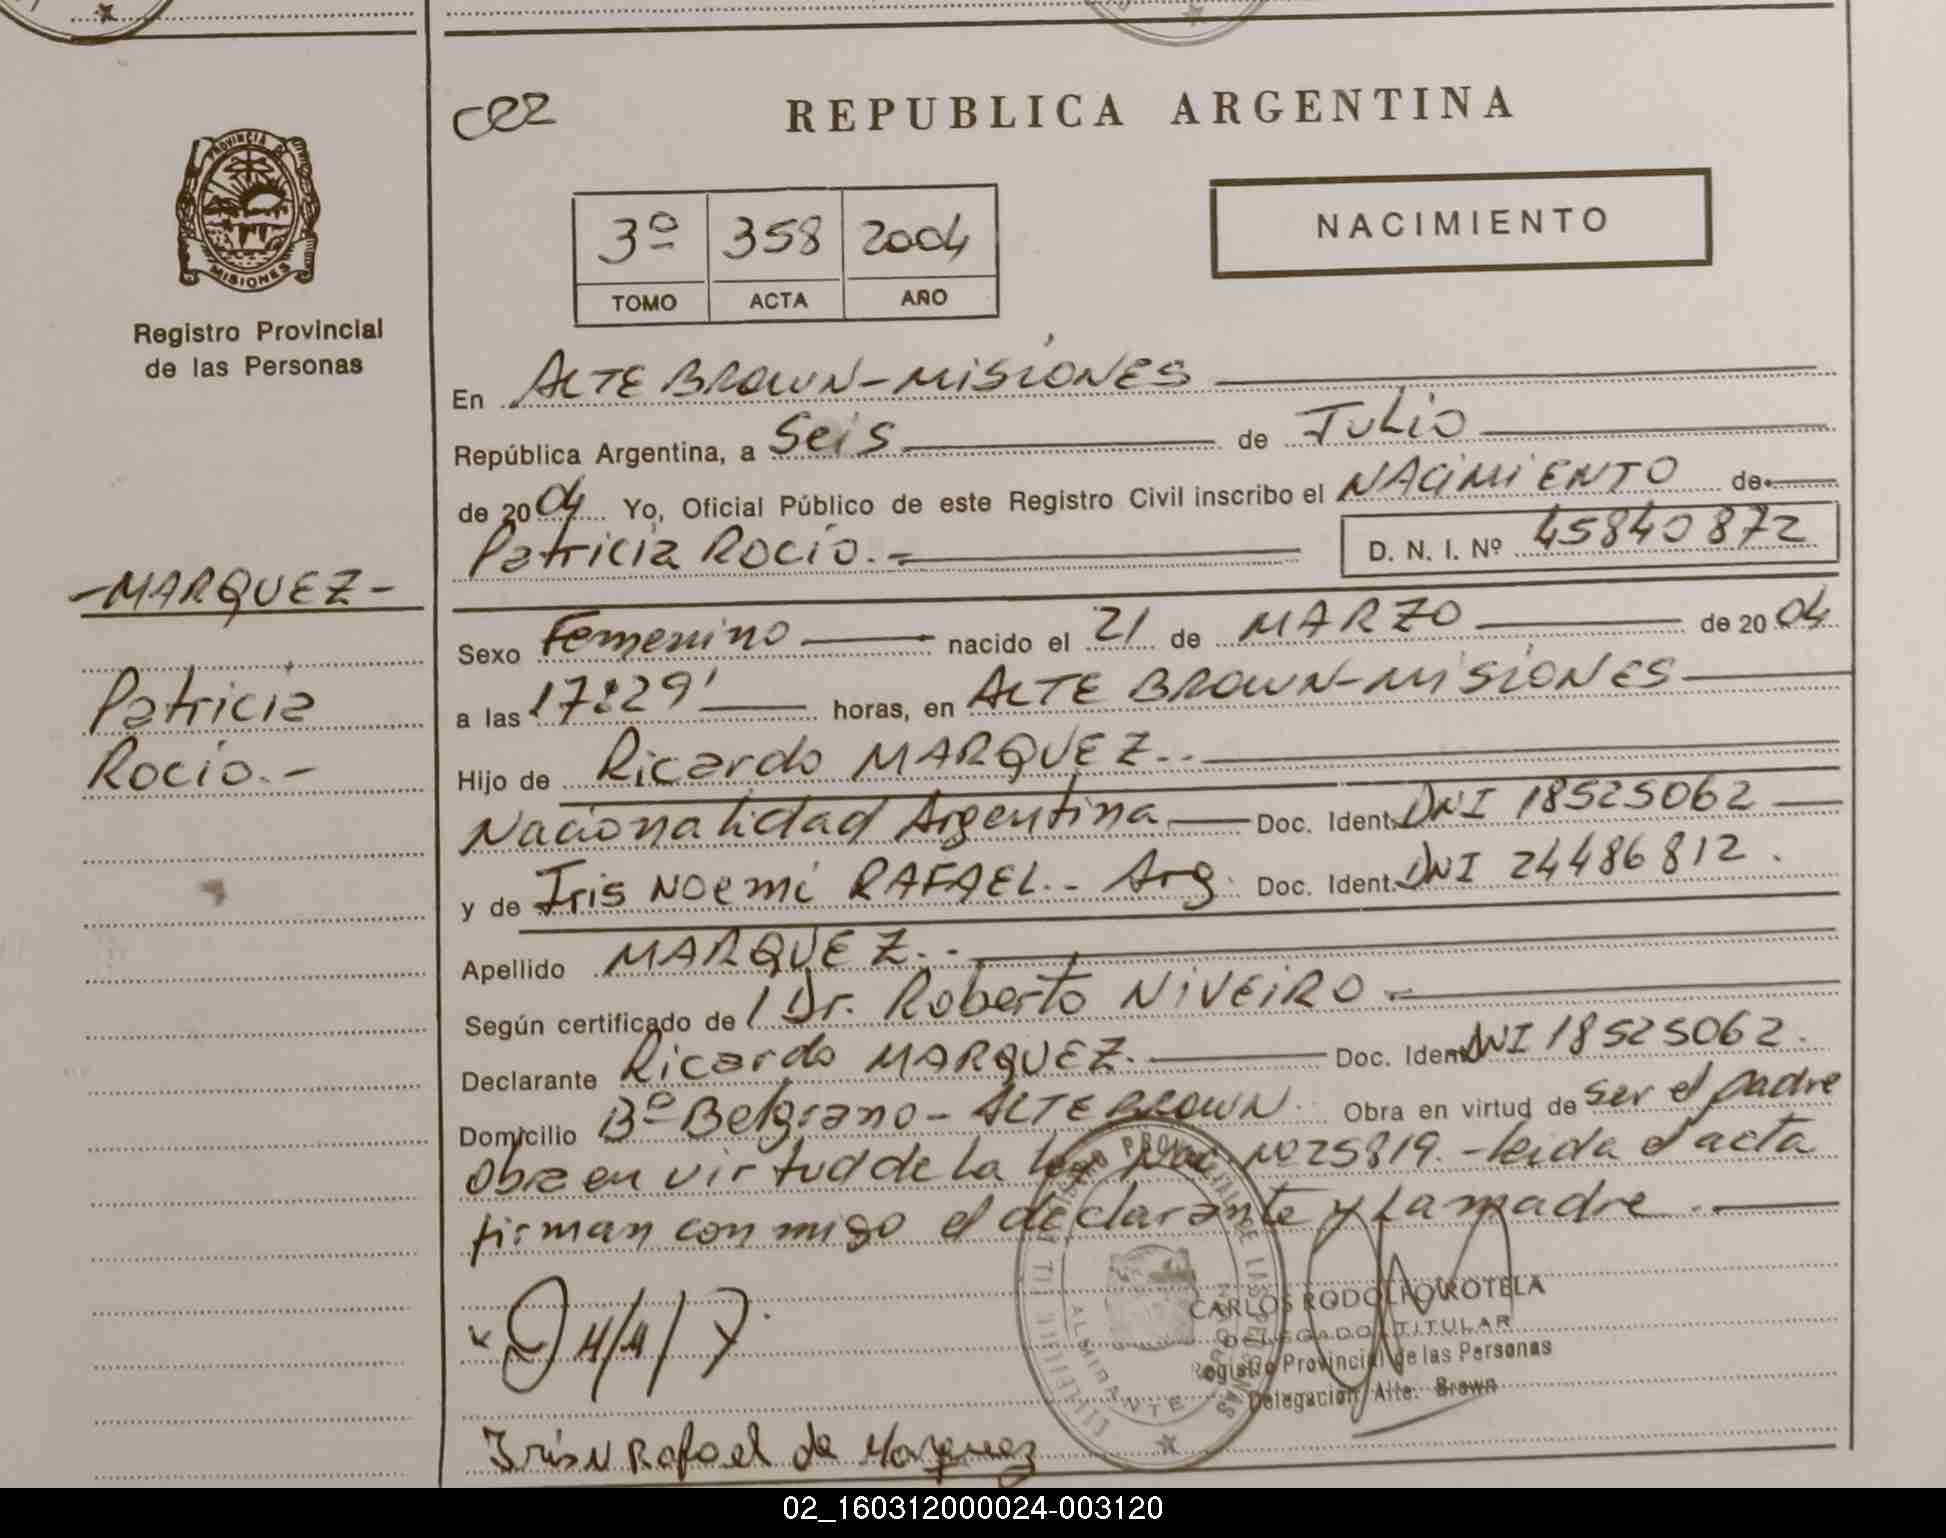 REPUBLICA ARGENTINA
PROVINCIA DE
MISIONES
Registro Provincial
de las Personas
3º 358 2004
TOMO ACTA AÑO
NACIMIENTO
En ALTE BROWN-MISIONES
República Argentina, a Seis de Julio
de 2004 Yo, Oficial Público de este Registro Civil inscribo el NACIMIENTO de
Patricia Rocío.- D. N. I. Nº 45840872
-MARQUEZ-
Patricia
Rocío.-
Sexo Femenino nacido el 21 de MARZO de 2004
a las 17:29' horas, en ALTE BROWN-MISIONES
Hijo de Ricardo MARQUEZ.-
Nacionalidad Argentina Doc. Ident. DNI 18525062
y de Iris Noemí RAFAEL.- Arg. Doc. Ident. DNI 24486812.
Apellido MARQUEZ.-
Según certificado de Dr. Roberto NIVEIRO-
Declarante Ricardo MARQUEZ. Doc. Ident. DNI 18525062.
Domicilio Bº Belgrano - ALTE BROWN. Obra en virtud de ser el padre
obra en virtud de la ley Nac. Nº 25819.-leida el acta
firman con migo el declarante y la madre.
CARLOS RODOLFO ROTELA
DELEGADO TITULAR
Registro Provincial de las Personas
Delegación Alte. Brown
Iris N Rafael de Marquez
02_160312000024-003120